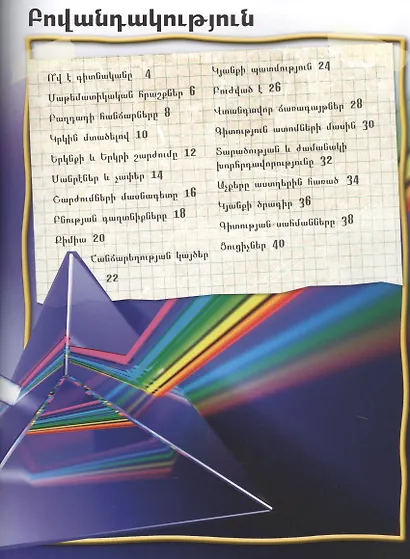 Բովանդակություն
Ո՞վ է գիտնականը 4
Մաթեմատիկական հրաշքներ 6
Բաղդադի հանճարները 8
Կրկին մտածելով 10
Երկնքի և Երկրի շարժումը 12
Մանրէներ և չափեր 14
Շարժումների մասնագետը 16
Բնության գաղտնիքները 18
Քիմիա 20
Հանճարեղության կայծեր
22
Կյանքի պատմություն 24
Բուժված է 26
Վտանգավոր ճառագայթներ 28
Գիտություն ատոմների մասին 30
Տարածության և ժամանակի
խորհրդավորությունը 32
Աչքերը աստղերին հառած 34
Կյանքի ծրագիր 36
Գիտության սահմանները 38
Ցուցիչներ 40